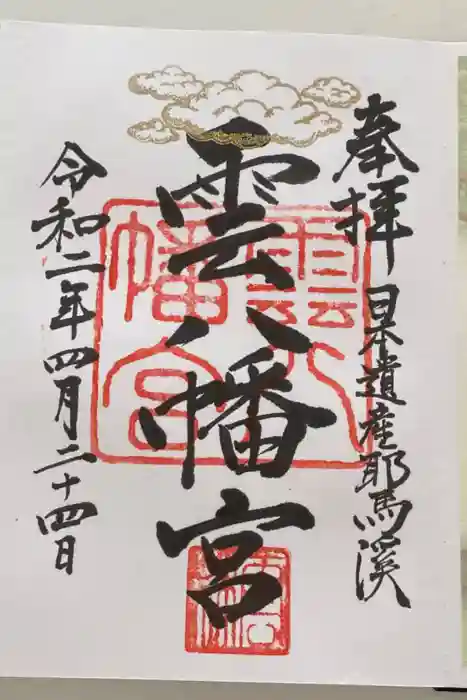 奉拝 日本遺産耶馬溪
雲八幡宮
雲八幡宮
令和二年四月二十四日